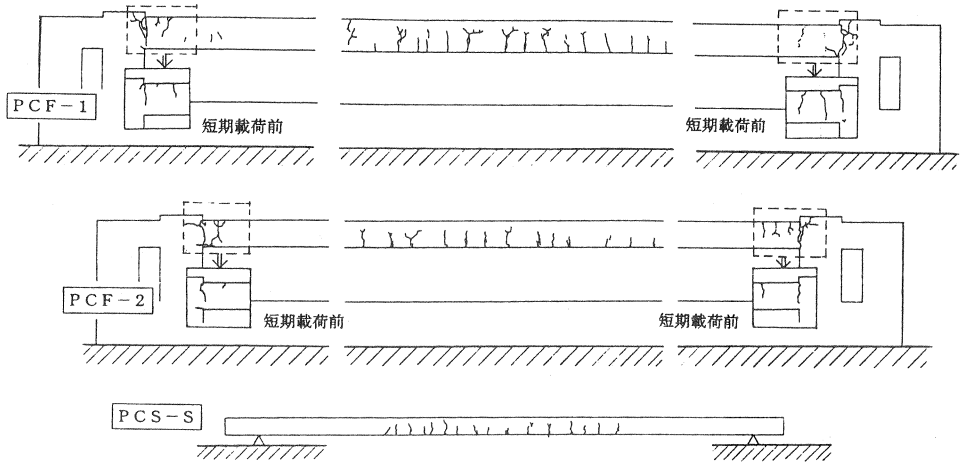 PCF-1
短期載荷前
短期載荷前
PCF-2
短期載荷前
短期載荷前
PCS-S